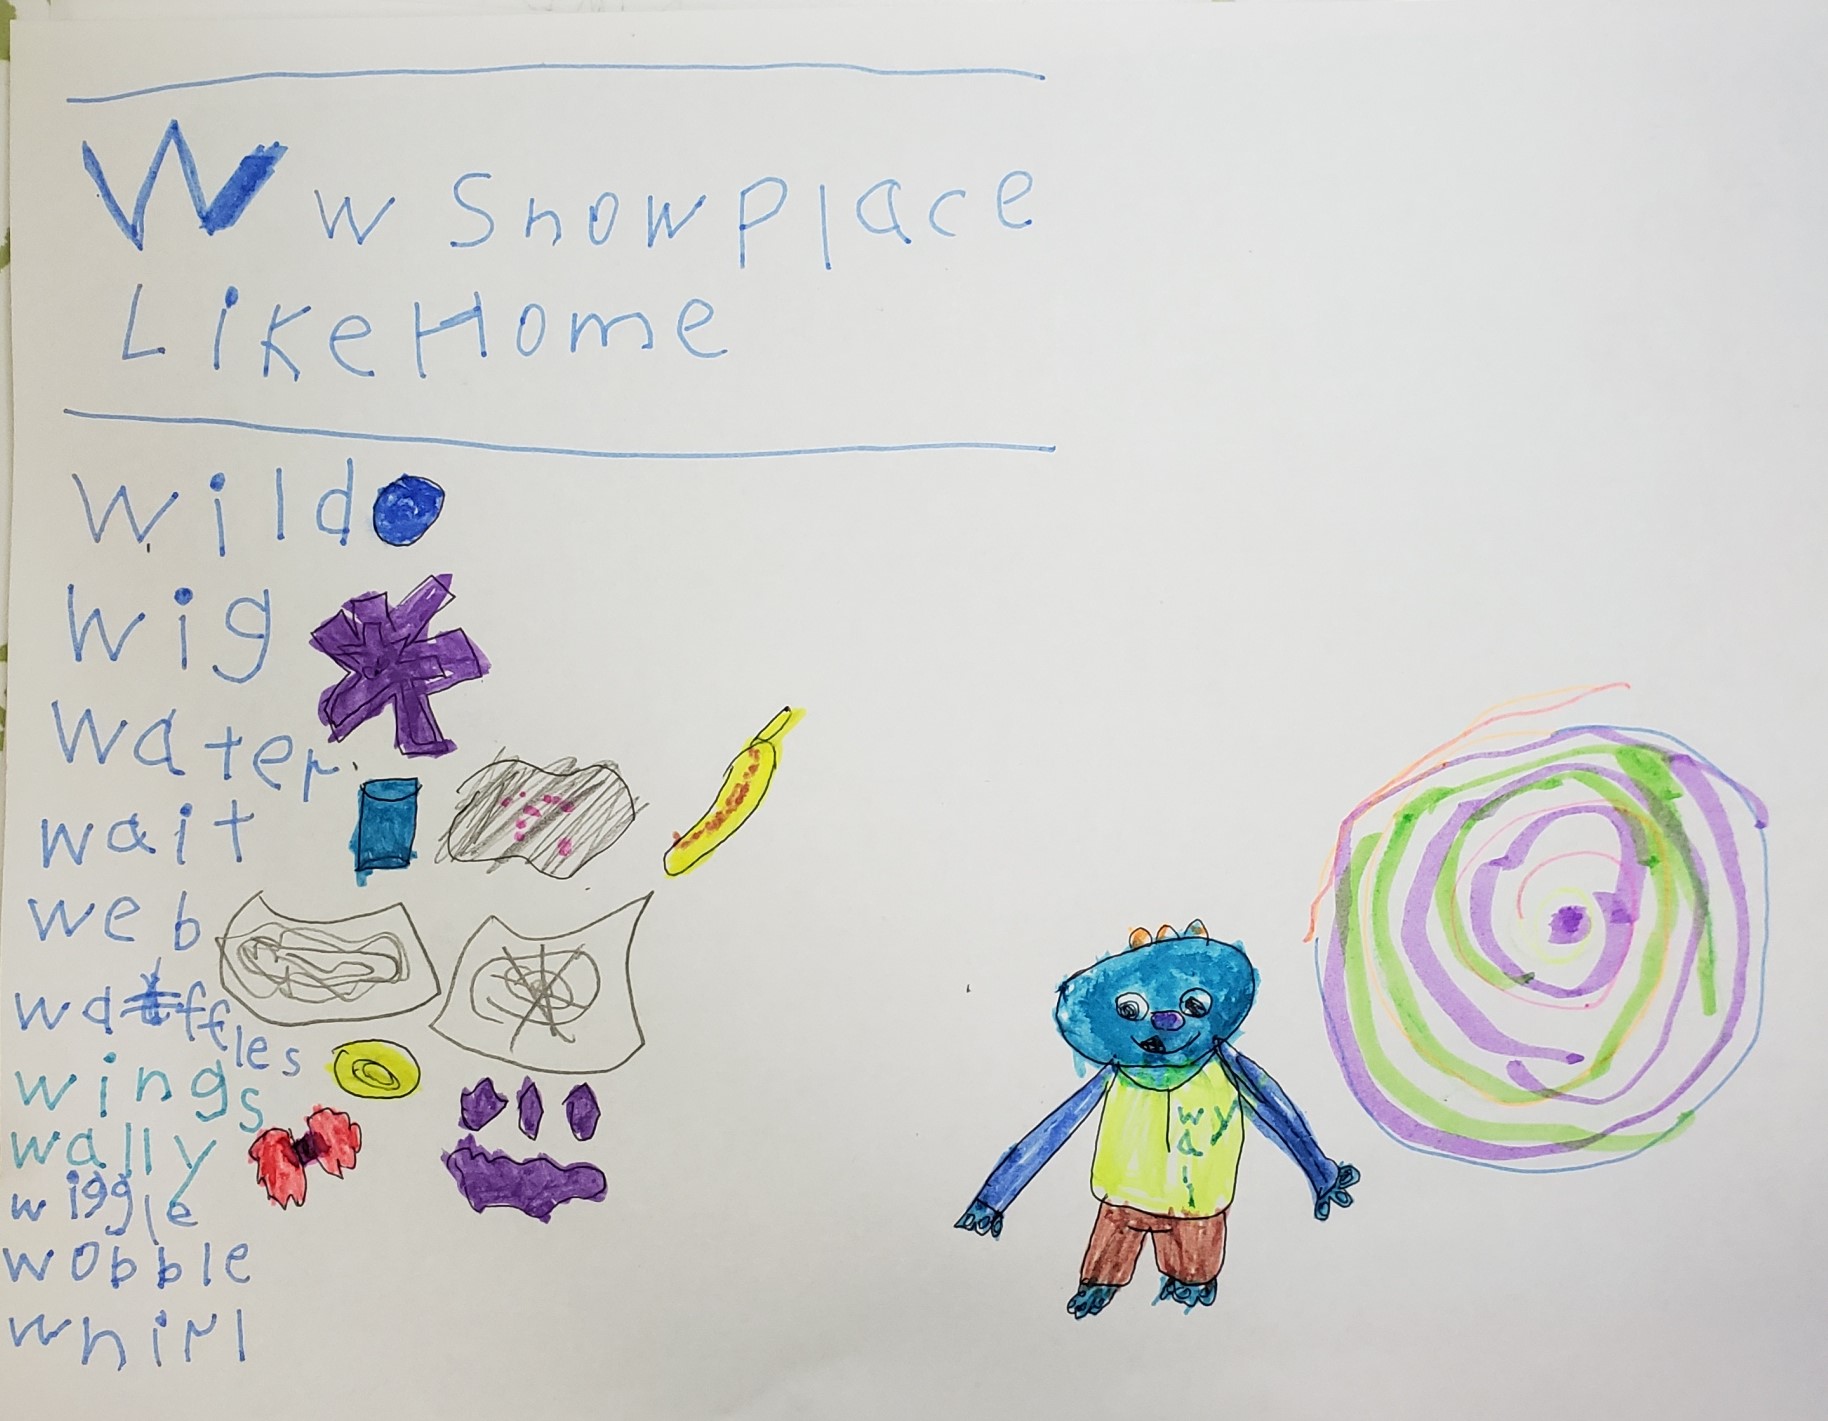 W w Snow Place
Like Home
wild
wig
water
wait
web
waffles
wings
wally
wiggle
wobble
whirl
wally